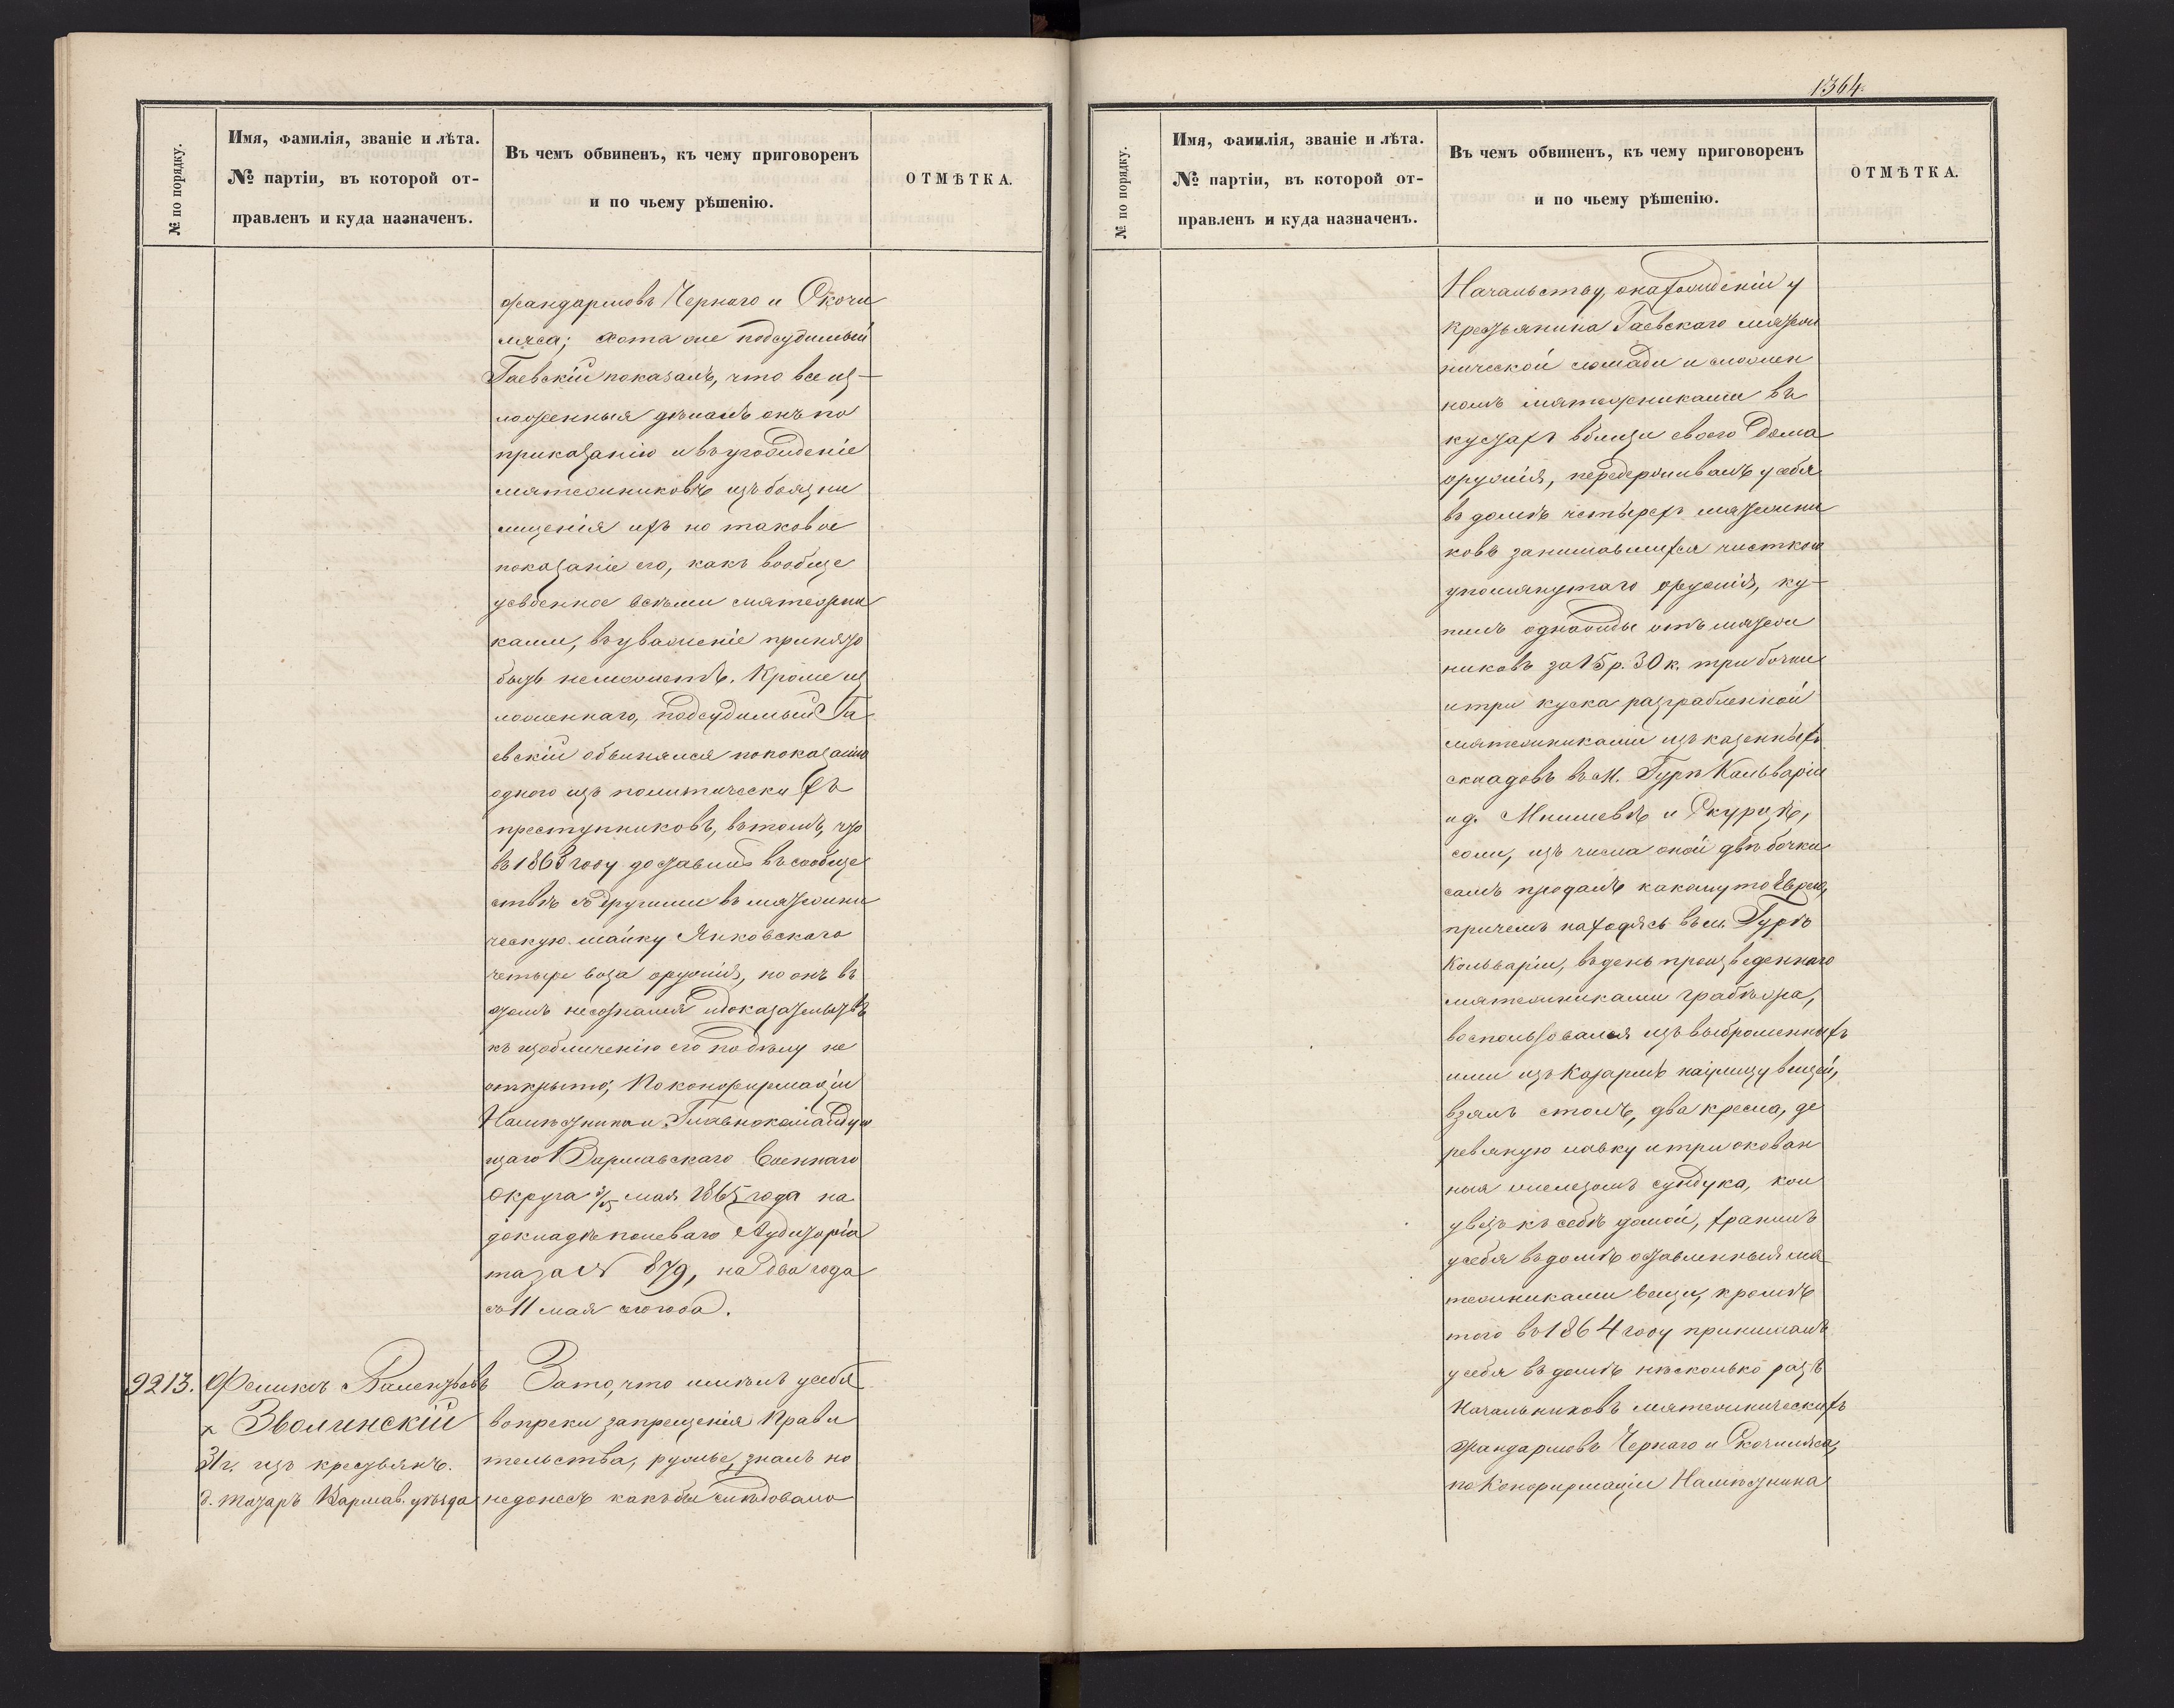 № по порядку.
Имя, фамилія, званіе и лѣта.
№ партіи, въ которой от-
правленъ и куда назначенъ.
Въ чемъ обвиненъ, къ чему приговоренъ
и по чьему рѣшенію.
ОТМѢТКА.
жандармовъ Чернаго и Скочи
ляса; хотя же подсудимый
Гаевскій показалъ, что все из-
ложенныя дѣлалъ онъ по
приказанію и въ угожденіе
мятежниковъ изъ боязни
мщенія ихъ но таковое
показаніе его, какъ вообще
усвоенное всѣми мятежни
ками, въ уваженіе принято
быть неможетъ. Кроме из
ложеннаго, подсудимый Га
евскій обвинялся по показанію
одного изъ политически хъ
преступниковъ, въ томъ, что
въ 1863 году доставилъ въ сообще
ствѣ съ другими въ мятежни
ческую шайку Янковскаго
четыре воза оружія, но онъ въ
томъ несознался и доказательствъ
къ изобличенію его по дѣлу не
открыто; По конфирмаціи
Намѣстника и Главнокомандую
щаго Варшавскаго Военнаго
Округа 3/15 мая 1865 года на
докладѣ полеваго Аудиторіа
та за № 879, на два года
съ 11 мая сего года.
9213. Феликсъ Валентьевъ
Зволинскій
31 г. изъ крестьянъ.
д. Тотаръ Варшав. уѣзда
За то, что имѣлъ у себя
вопреки запрещенія Прави
тельства, ружье, зналъ но
недонесъ какъ бы слѣдовало
1364.
№ по порядку.
Имя, фамилія, званіе и лѣта.
№ партіи, въ которой от-
правленъ и куда назначенъ.
Въ чемъ обвиненъ, къ чему приговоренъ
и по чьему рѣшенію.
ОТМѢТКА.
Начальству, о нахожденіи у
крестьянина Гаевскаго мятеж
нической лошади и сложен
номъ мятежниками въ
кустахъ вблизи своего дома
оружія, передерживалъ у себя
въ домѣ четырехъ мятежни
ковъ занимавшихся чисткою
упомянутаго оружія, ку-
пилъ однажды отъ мятеж
никовъ за 15 р. 30 к. три бочки
и три куска разграбленной
мятежниками изъ казенныхъ
складовъ въ м. Гурѣ Кальваріи
и д. Мнишевѣ и Скурагѣ,
соли, изъ числа оной двѣ бочки
самъ продалъ какому то Еврею,
причемъ находясь въ м. Гурѣ
Кальваріи, въ день произведеннаго
мятежниками грабежа,
воспользовался изъ выброшенныхъ
ими изъ Казармъ на улицу вещей,
взялъ столъ, два кресла, де
ревяную лавку и три окован
ныя железомъ сундука, кои
увезъ къ себѣ домой, хранилъ
у себя въ домѣ оставленныя мя
тежниками вещи, кромѣ
того въ 1864 году принималъ
у себя въ домѣ нѣсколько разъ
Начальниковъ мятежническихъ
жандармовъ Чернаго и Скочиляса,
по Конфирмаціи Намѣстника